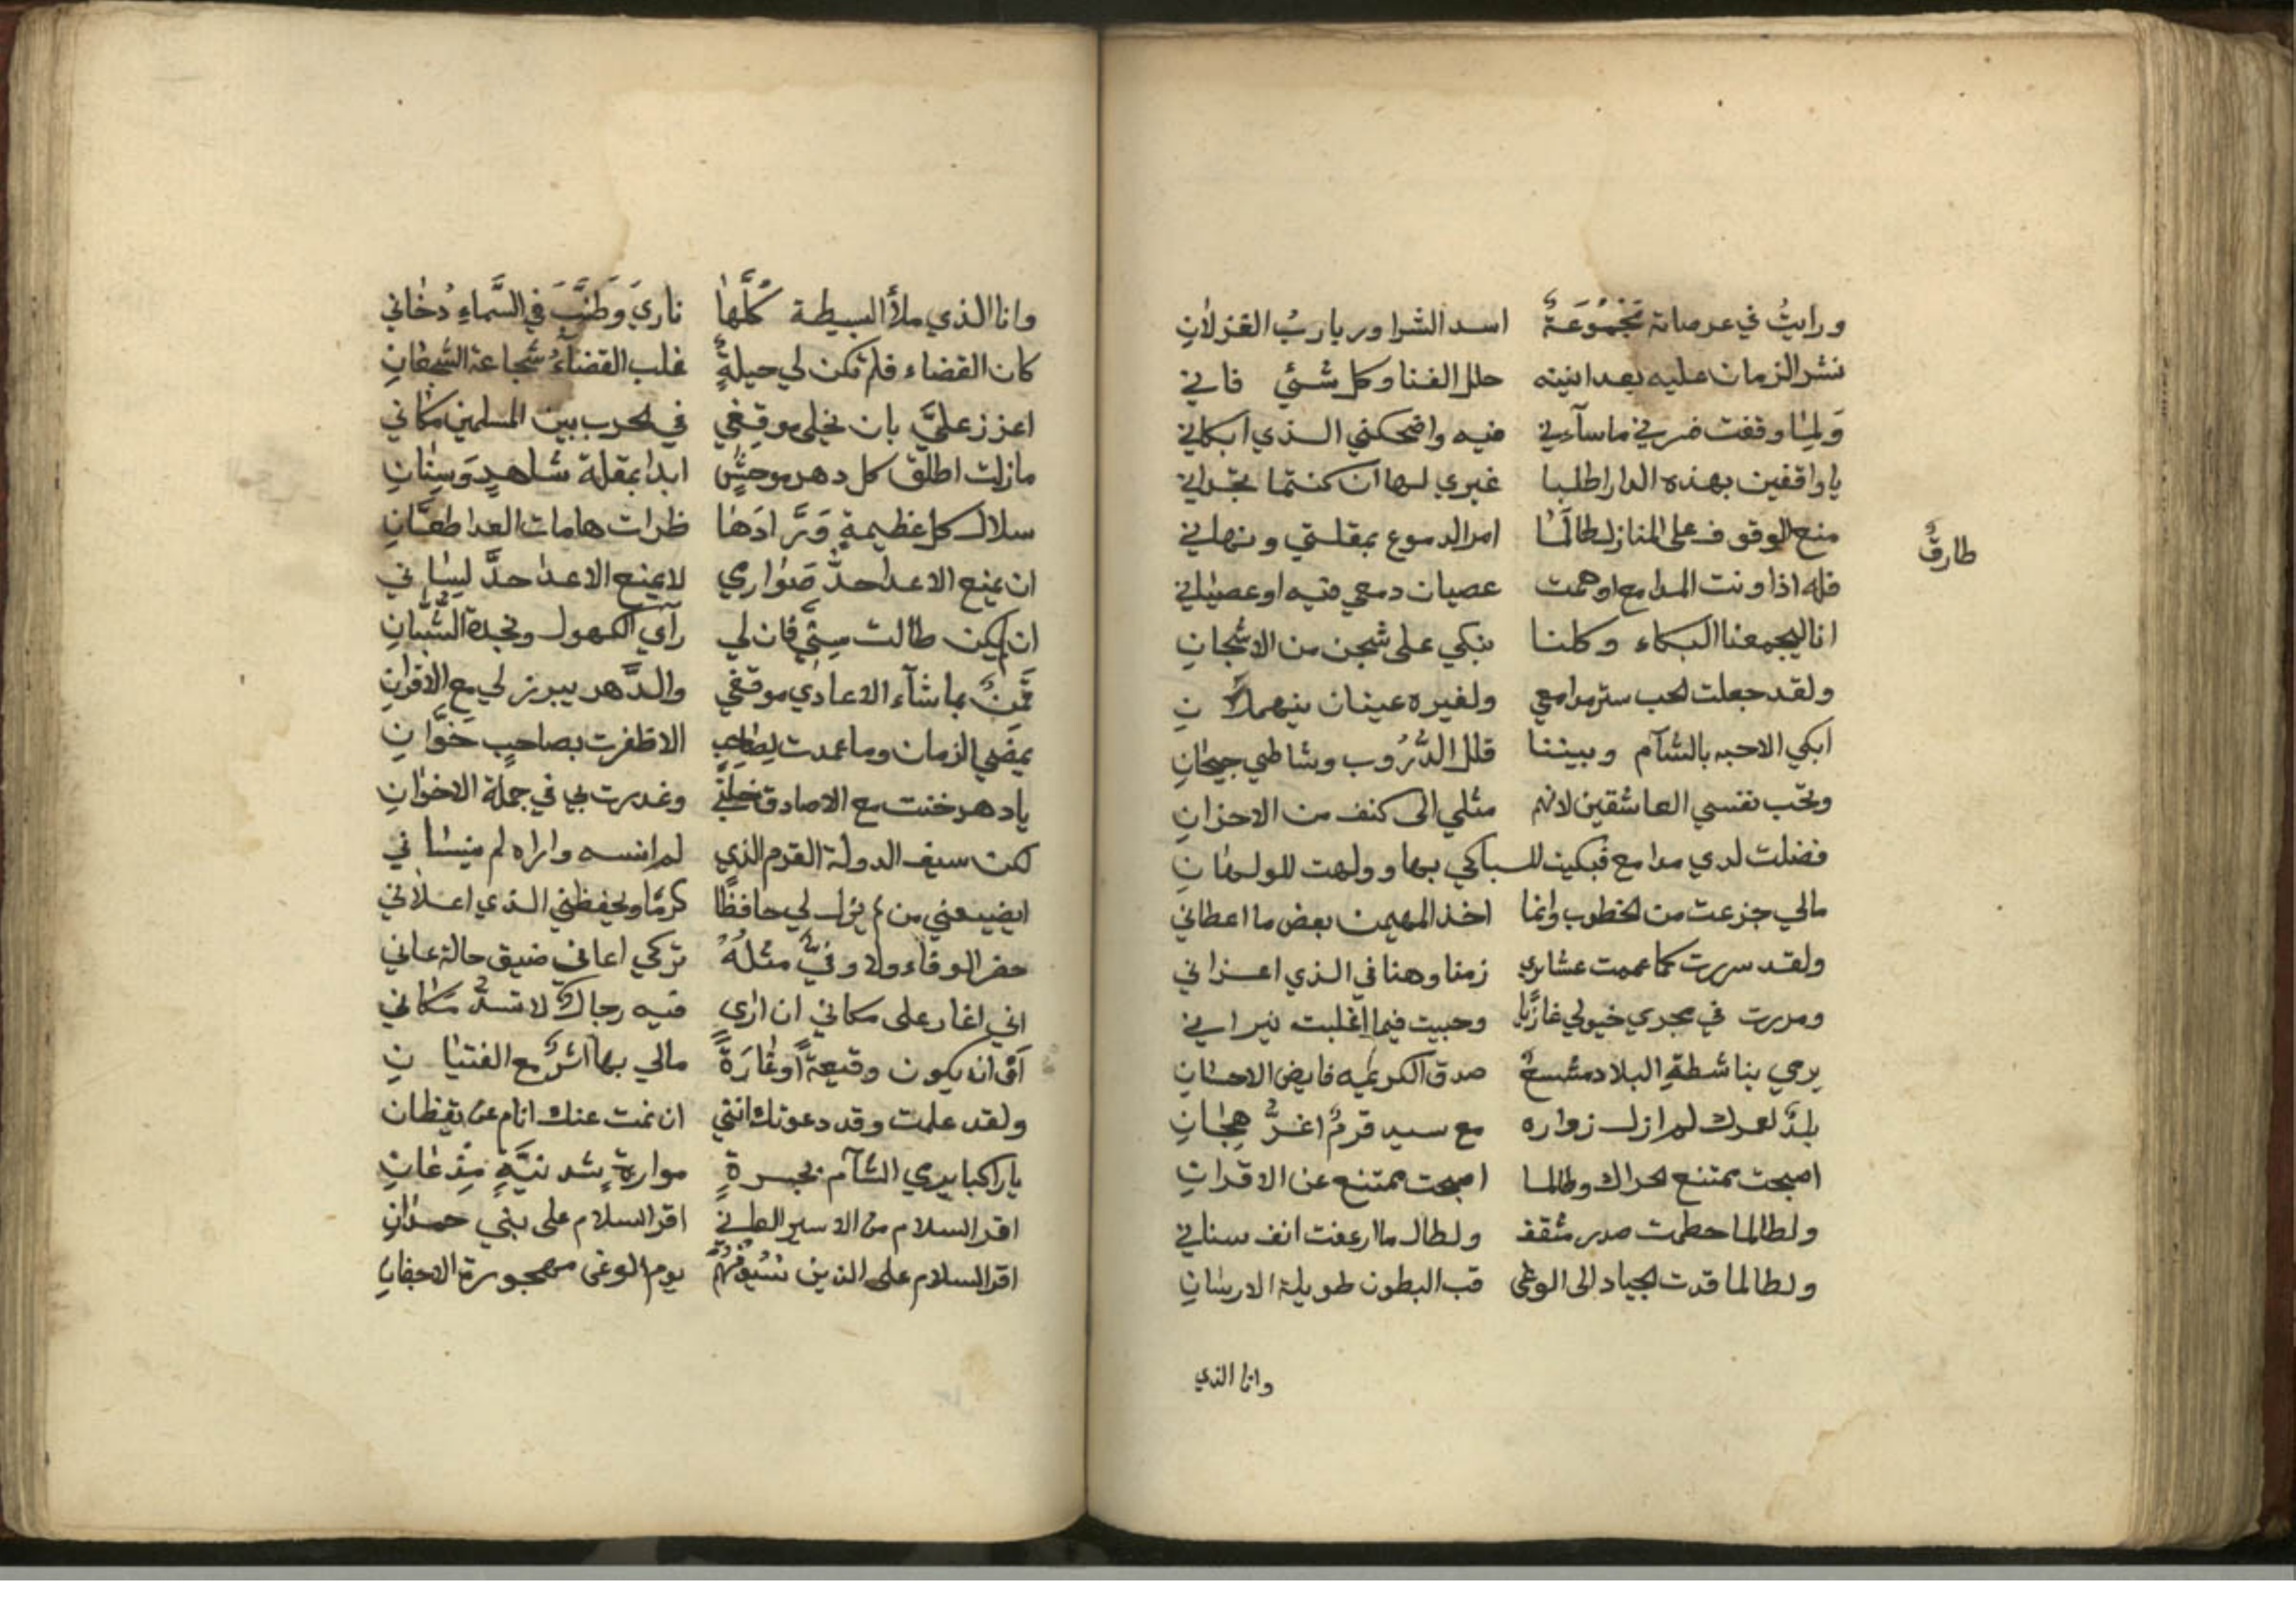 ورايتُ في عرصاته مَجْمُوعَةً اسد الشرا وربارب الغزلانِ
نشر الزمان عليه بعد انيته حلل الفنا وكل شئي فاني
وَلما وقفت ضرني ما ساءني فيه واضحكني الذي ابكاني
يا واقفين بهذه الدار اطلبا غيري لها ان كنتما تجداني
منع الوقوف على المنازل طالما امر الدموع بمقلتي ونهاني
طارقٌ
فله اذا ونت المدامع اوهمت عصيان دمعي فيه او عصياني
انا ليجمعنا البكاء وكلنا نبكي على شجن من الاشجانِ
ولقد جعلت الحب ستر مدامعي ولغيره عينان ينهملانِ
ابكي الاحبه بالشآم وبيننا قلل الدُّرُوب وشاطي جيحانِ
وتحب نفسي العاشقين لانهم مثلي الى كنف من الاحزانِ
فضلت لدي مدامع فبكيت للباكي بها وولهت للولهانِ
مالي جزعت من الخطوب وانما اخذ المهيمن بعض ما اعطاني
ولقد سررت كما عممت عشايري زمنا وهنا في الذي اعزاني
ومررت في مجري خيولي غازيًا وحبيت فيما اغلبت نيراني
يرمي بنا شطة البلاد مشسعٌ صدق الكريمه فايض الاحسانِ
بلدٌ لعمرك لم ازل زواره مع سيد قرمٍ اغرٍّ هجانِ
اصبحت ممتنع الحراك وطالما اصبحت ممتنع عن الاقرانِ
ولطالما حطمت صدر مثقف ولطال ما ارعفت انف سناني
ولطالما قدت الجياد الى الوغى قب البطون طويلة الارسانِ
وانا الذي
وانا الذي ملأ البسيطة كُلَّها ناريَ وَطَنَّبَ في السَّماءِ دُخاني
كان القضاء فلم تكن لي حيلةٌ غلب القضاءُ شجاعة الشجعانِ
اعزز عليَّ بان يخلى موقفي في الحرب بين المسلمين مكاني
مازلت اطلق كل دهر موحشٍ ابدا بمقلة شاهدٍ وَسِنانِ
سلال كل عظيمةٍ وَرَّادَها ظرات هامات العدا طعَّانِ
ان يمنع الاعدا حدَّ صَوارمي لا يمنع الاعدا حدَّ لساني
ان يكن طالت سني فان لي رآي الكهول ونجدة الشُّبَّانِ
قَمِنٌ بما شآء الاعادي موقفي والدَّهر يبرز لي مع الاقرانِ
يمضي الزمان وما عمدت لصاحبٍ الا ظفرت بصاحبٍ خَوَّانِ
يا دهر خنت مع الاصادق خلتي وغدرت بي في جملة الاخوانِ
لكن سيف الدولة القرم الذي لم انسه واراه لم ينساني
ايضيعني من لم يزل لي حافظًا كرمًا ويحفظني الذي اعلاني
خفر الوفاء ولا وفيٌّ مثلُهُ تركي اعاني ضيق حالة عاني
اني اغار على مكاني ان ارى فيه رجالٌ لا تسدُّ مكاني
اَو ان يكون وقيعةً او غارَةً مالي بها اثرٌ مع الفتيانِ
ولقد علمت وقد دعوتك انني ان نمت عنك انام عن يقظان
يا راكبا يرمي الشآم بجسرةٍ موارةٍ شدنيَّةٍ مِذْعانِ
اقر السلام من الاسير العاني اقر السلام على بني حمدانِ
اقر السلام على الذين سيُوفُهُمْ يوم الوغى مهجورة الاجفانِ